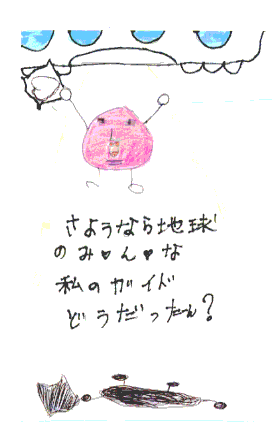 さようなら地球
のみ♥ん♥な
私のガイド
どうだったん?